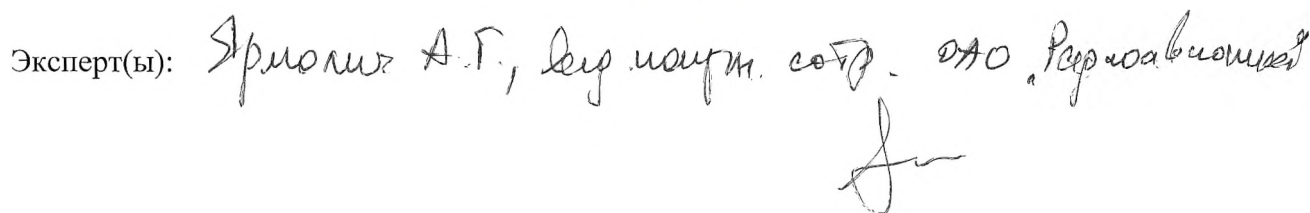 Эксперт(ы): Ярмолич А.Г., вед. научн. сотр. ОАО „Радиоавионика"